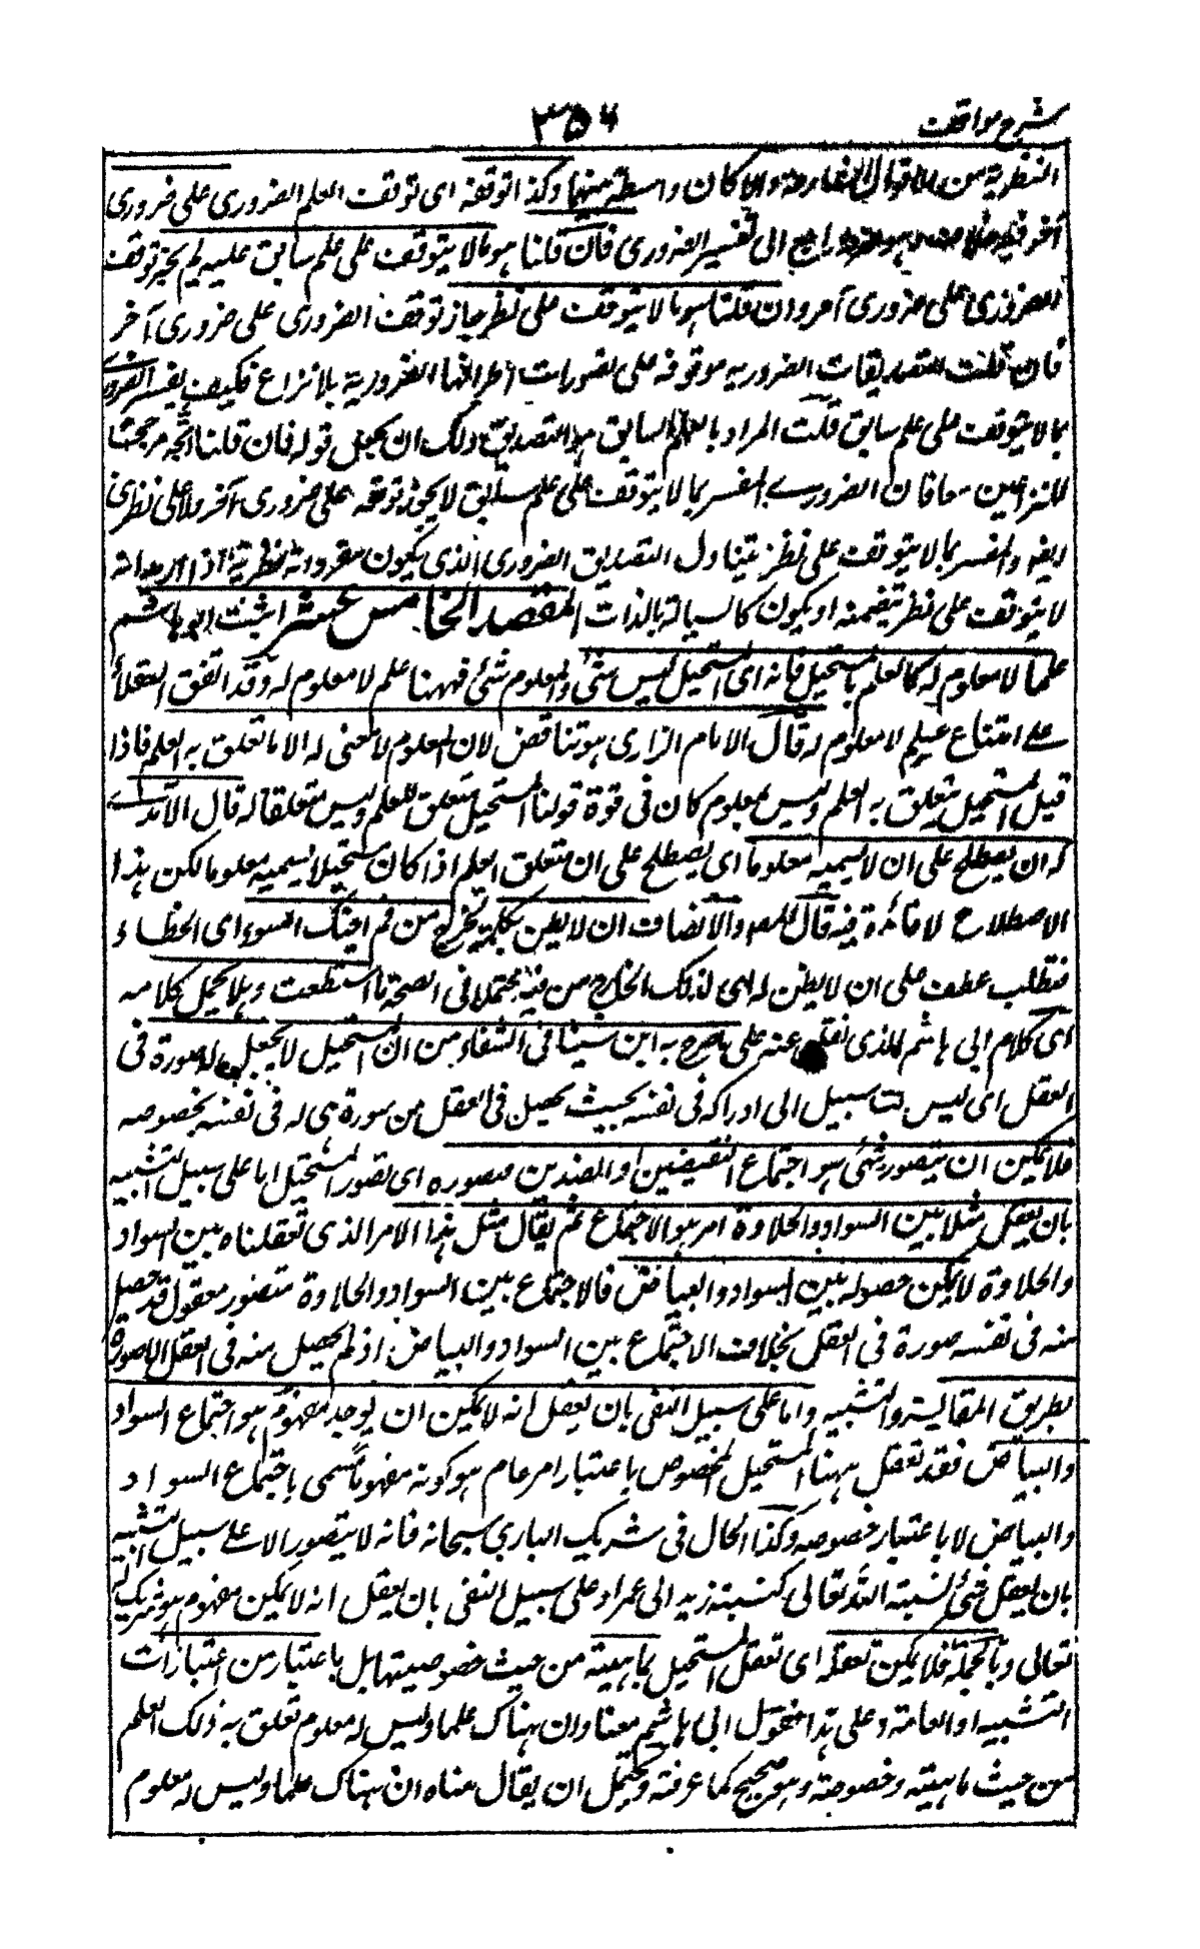 شرح مواقف
٣٥٦
النظرية من الاقوال المتعارضة والا كان واسطة بينهما وكذا توقفه اى توقف العلم الضرورى على ضرورى
آخر فيه خلاف وهو راجع الى تفسير الضرورى فان قلنا هو ما لا يتوقف على علم سابق عليه لم يجز توقف
الضرورى على ضرورى آخر وان قلنا هو ما لا يتوقف على نظر جاز توقف الضرورى على ضرورى آخر
فان قلت التصديقات الضرورية موقوفة على تصورات اطرافها الضرورية بلا نزاع فكيف يفسر الضرورى
بما لا يتوقف على علم سابق قلت المراد بالعلم السابق هو التصديق ولك ان تجعل قوله فان قلنا اتجه مرجحا
للنزاعين معا فان الضرورى المفسر بما لا يتوقف على علم سابق لا يجوز توقفه على ضرورى آخر ولا على نظرى
ايضا والمفسر بما لا يتوقف على نظر يتناول التصديق الضرورى الذى يكون مفرداته نظرية اذا اريد انه
لا يتوقف على نظر يتضمنه او يكون كالسيالة بالذات المقصد الخامس عشر اثبت ابو هاشم
علما لا معلوم له كالعلم بالمستحيل فانه اى المستحيل ليس بشئ والمعلوم شئ فههنا علم لا معلوم له وقد اتفق العقلاء
على امتناع علم لا معلوم له قال الامام الرازى هو تناقض لان المعلوم لا معنى له الا ما تعلق به العلم فاذا
قيل المستحيل يتعلق به العلم وليس بمعلوم كان فى قوة قولنا المستحيل متعلق للعلم وليس متعلقا له قال الآمدى
له ان يصطلح على ان لا يسميه معلوما اى يصطلح على ان متعلق العلم اذا كان مستحيلا لا يسميه معلوما لكن هذا
الاصطلاح لا فائدة فيه قال المص والانصاف ان لا يظن بكلمة تخرج من فم اخيك السوء اى الخطاء و
فتطلب عطف على ان لا يظن له اى لذلك الخارج من فيه محتملا فى الصحة ما استطعت وهلا تحمل كلامه
اى كلام ابى هاشم الذى نقل عنه على ما صرح به ابن سينا فى الشفاء من ان المستحيل لا يحصل له صورة فى
العقل اى ليس لنا سبيل الى ادراكه فى نفسه بحيث يحصل فى العقل من صورة هى له فى نفسه بخصوصه
فلا يمكن ان يتصور شئ هو اجتماع النقيضين او الضدين فتصوره اى تصور المستحيل اما على سبيل التشبيه
بان يعقل مثلا بين السواد والحلاوة امر هو الاجتماع ثم يقال مثل هذا الامر الذى تعقلناه بين السواد
والحلاوة لا يمكن حصوله بين السواد والبياض فالاجتماع بين السواد والحلاوة متصور معقول قد حصل
منه فى نفسه صورة فى العقل بخلاف الاجتماع بين السواد والبياض اذ لم يحصل منه فى العقل الا صورة
بطريق المقايسة والتشبيه واما على سبيل النفى بان يعقل انه لا يمكن ان يوجد مفهوم هو اجتماع السواد
والبياض فقد تعقل ههنا المستحيل المخصوص باعتبار امر عام هو كونه مفهوما مسمى باجتماع السواد
والبياض لا باعتبار خصوصه وكذا الحال فى شريك البارى سبحانه فانه لا يتصور الا على سبيل التشبيه
بان يعقل شئ نسبته الى الله تعالى كنسبة زيد الى عمر او على سبيل النفى بان يعقل انه لا يمكن مفهوم هو شريك الله
تعالى وبالجملة فلا يمكن تعقله اى تعقل المستحيل بماهيته من حيث خصوصيتها بل باعتبار من اعتبارات
التشبيه او العامة وعلى هذا فنقول ابى هاشم معناه ان هناك علما وليس له معلوم تعلق به ذلك العلم
من حيث ماهيته وخصوصه وهو صحيح كما عرفته ويحتمل ان يقال معناه ان هناك علما وليس له معلوم